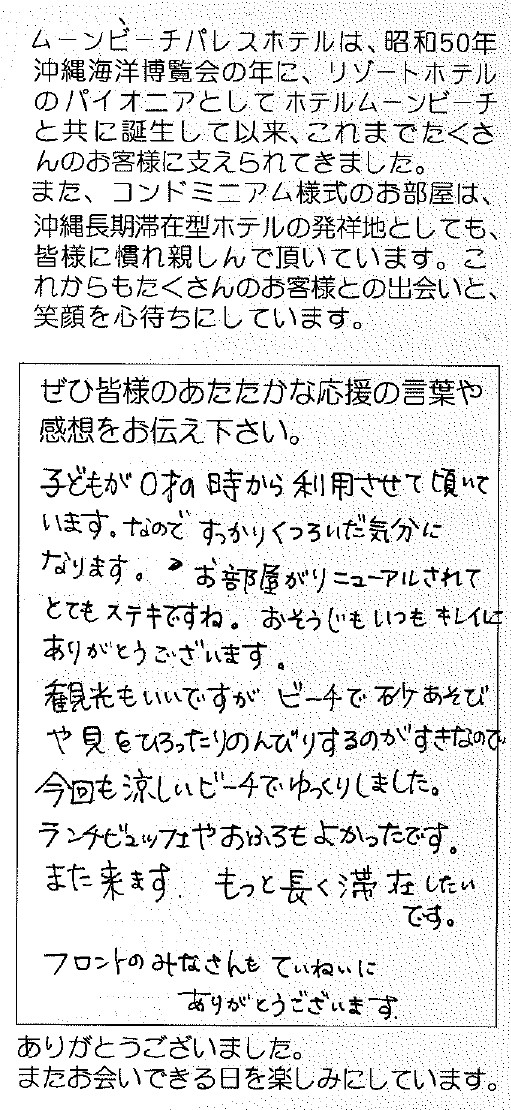 ムーンビーチパレスホテルは、昭和50年
沖縄海洋博覧会の年に、リゾートホテル
のパイオニアとしてホテルムーンビーチ
と共に誕生して以来、これまでたくさ
んのお客様に支えられてきました。
また、コンドミニアム様式のお部屋は、
沖縄長期滞在型ホテルの発祥地としても、
皆様に慣れ親しんで頂いています。こ
れからもたくさんのお客様との出会いと、
笑顔を心待ちにしています。
ぜひ皆様のあたたかな応援の言葉や
感想をお伝え下さい。
子どもが0才の時から利用させて頂いて
います。なので すっかりくつろいだ気分に
なります。 お部屋がリニューアルされて
とてもステキですね。おそうじもいつもキレイに
ありがとうございます。
観光もいいですが ビーチで砂あそび
や貝をひろったりのんびりするのがすきなので
今回も涼しいビーチでゆっくりしました。
ランチビュッフェやおふろもよかったです。
また来ます. もっと長く滞在したい
です。
フロントのみなさんも ていねいに
ありがとうございます.
ありがとうございました。
またお会いできる日を楽しみにしています。